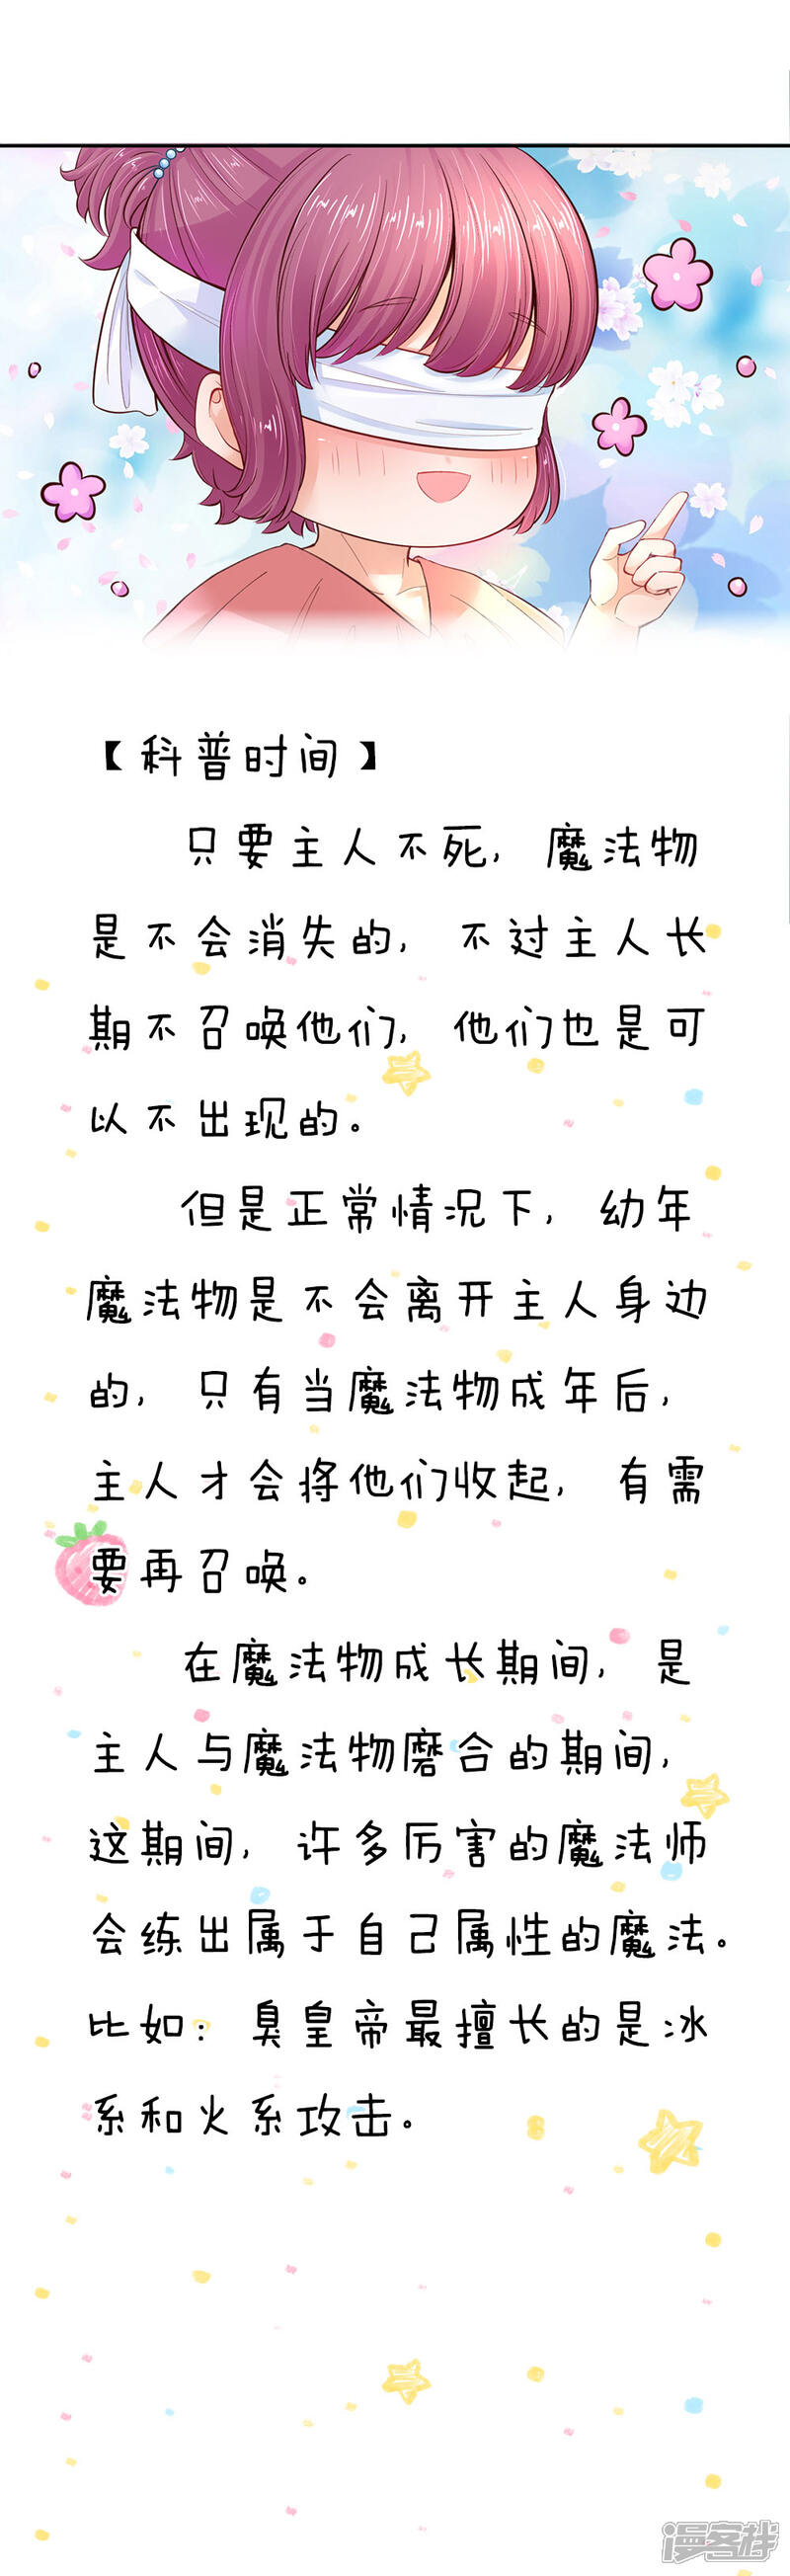 【科普时间】
只要主人不死，魔法物
是不会消失的，不过主人长
期不召唤他们，他们也是可
以不出现的。
但是正常情况下，幼年
魔法物是不会离开主人身边
的，只有当魔法物成年后，
主人才会将他们收起，有需
要再召唤。
在魔法物成长期间，是
主人与魔法物磨合的期间，
这期间，许多厉害的魔法师
会练出属于自己属性的魔法。
比如：臭皇帝最擅长的是冰
系和火系攻击。
漫客栈